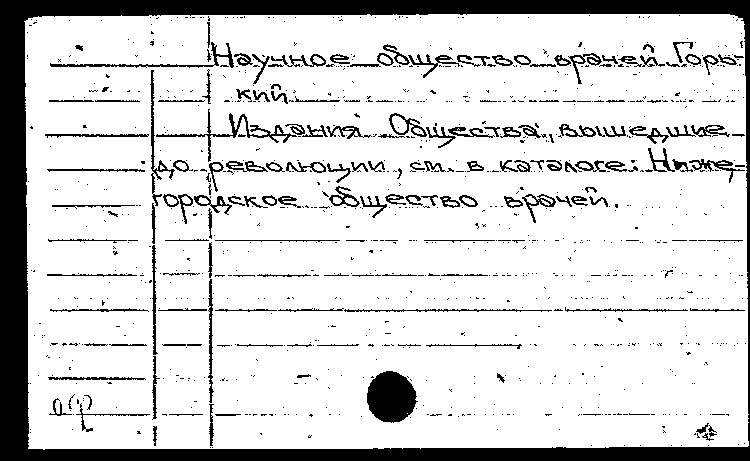 Научное общество врачей. Горь-
кий.
Издания Общества, вышедшие
до революции, см. в каталоге: Ниже-
городское общество врачей.